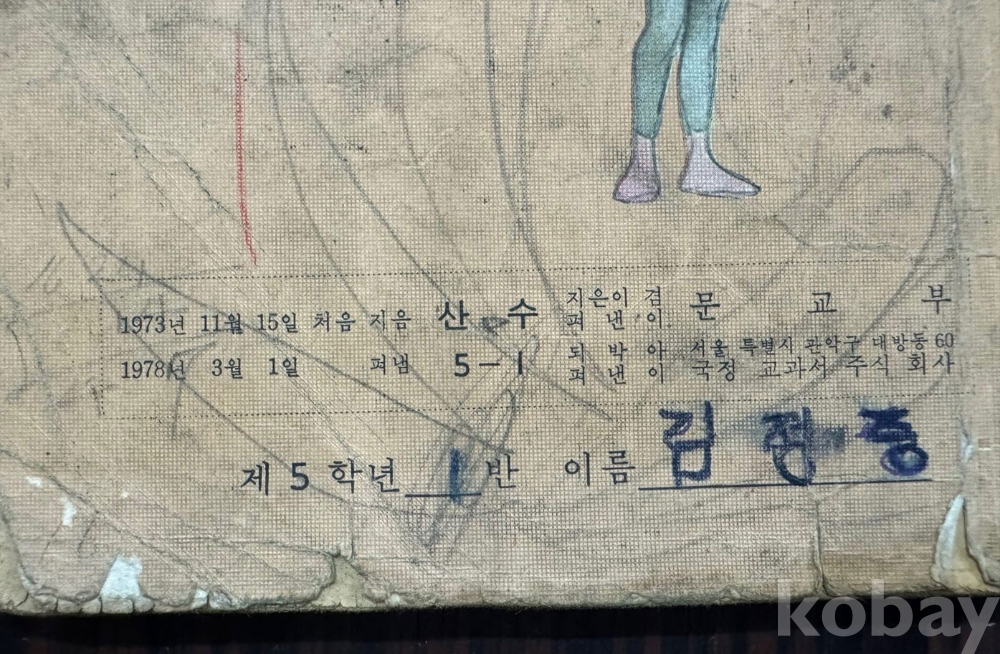 1973년 11월 15일 처음 지음 산 수 지은이 겸 펴 낸 이 문 교 부
1978년 3월 1일 펴냄 5-1 되 박 아 펴 낸 이 서울 특별시 관악구 대방동 60 국정 교과서 주식 회사
제 5 학년 1 반 이름 김
kobay